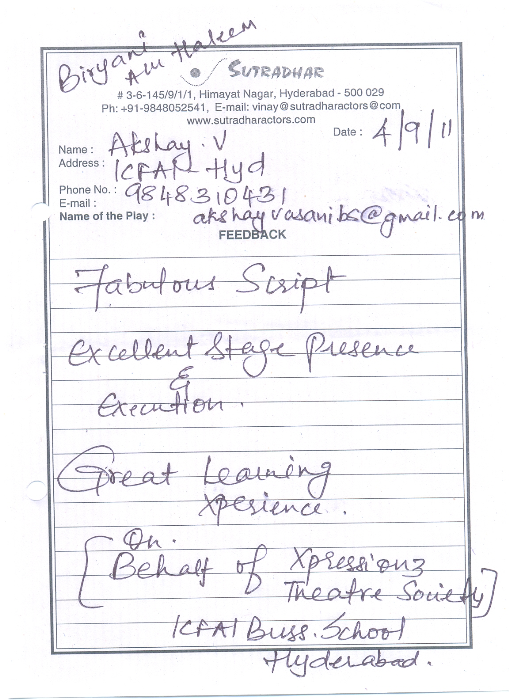 Biryani
Aur Haleem
SUTRADHAR
# 3-6-145/9/1/1, Himayat Nagar, Hyderabad - 500 029
Ph: +91-9848052541, E-mail: vinay@sutradharactors@com
www.sutradharactors.com
Date : 4/9/11
Name : Akshay. V
Address : ICFAI - Hyd
Phone No. : 9848310431
E-mail :
Name of the Play : akshayvasanibs@gmail.com
FEEDBACK
Fabulous Script
Excellent Stage Presence
&
Execution.
Great Learning
Xperience.
[On.
Behalf of Xpressionz
Theatre Society]
ICFAI Buss. School
Hyderabad.